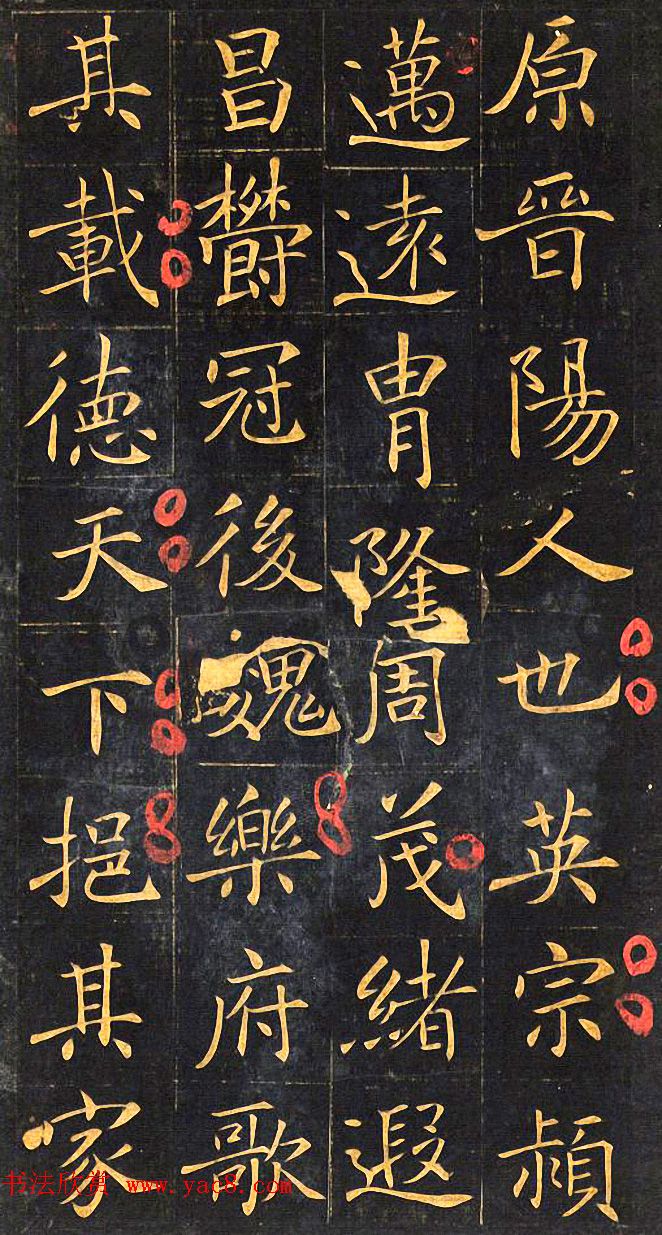 原晉陽人也英宗潁
邁遠胄隆周茂緒遐
昌欝冠後魏樂府歌
其載德天下挹其家
书法欣赏 www.yac8.com